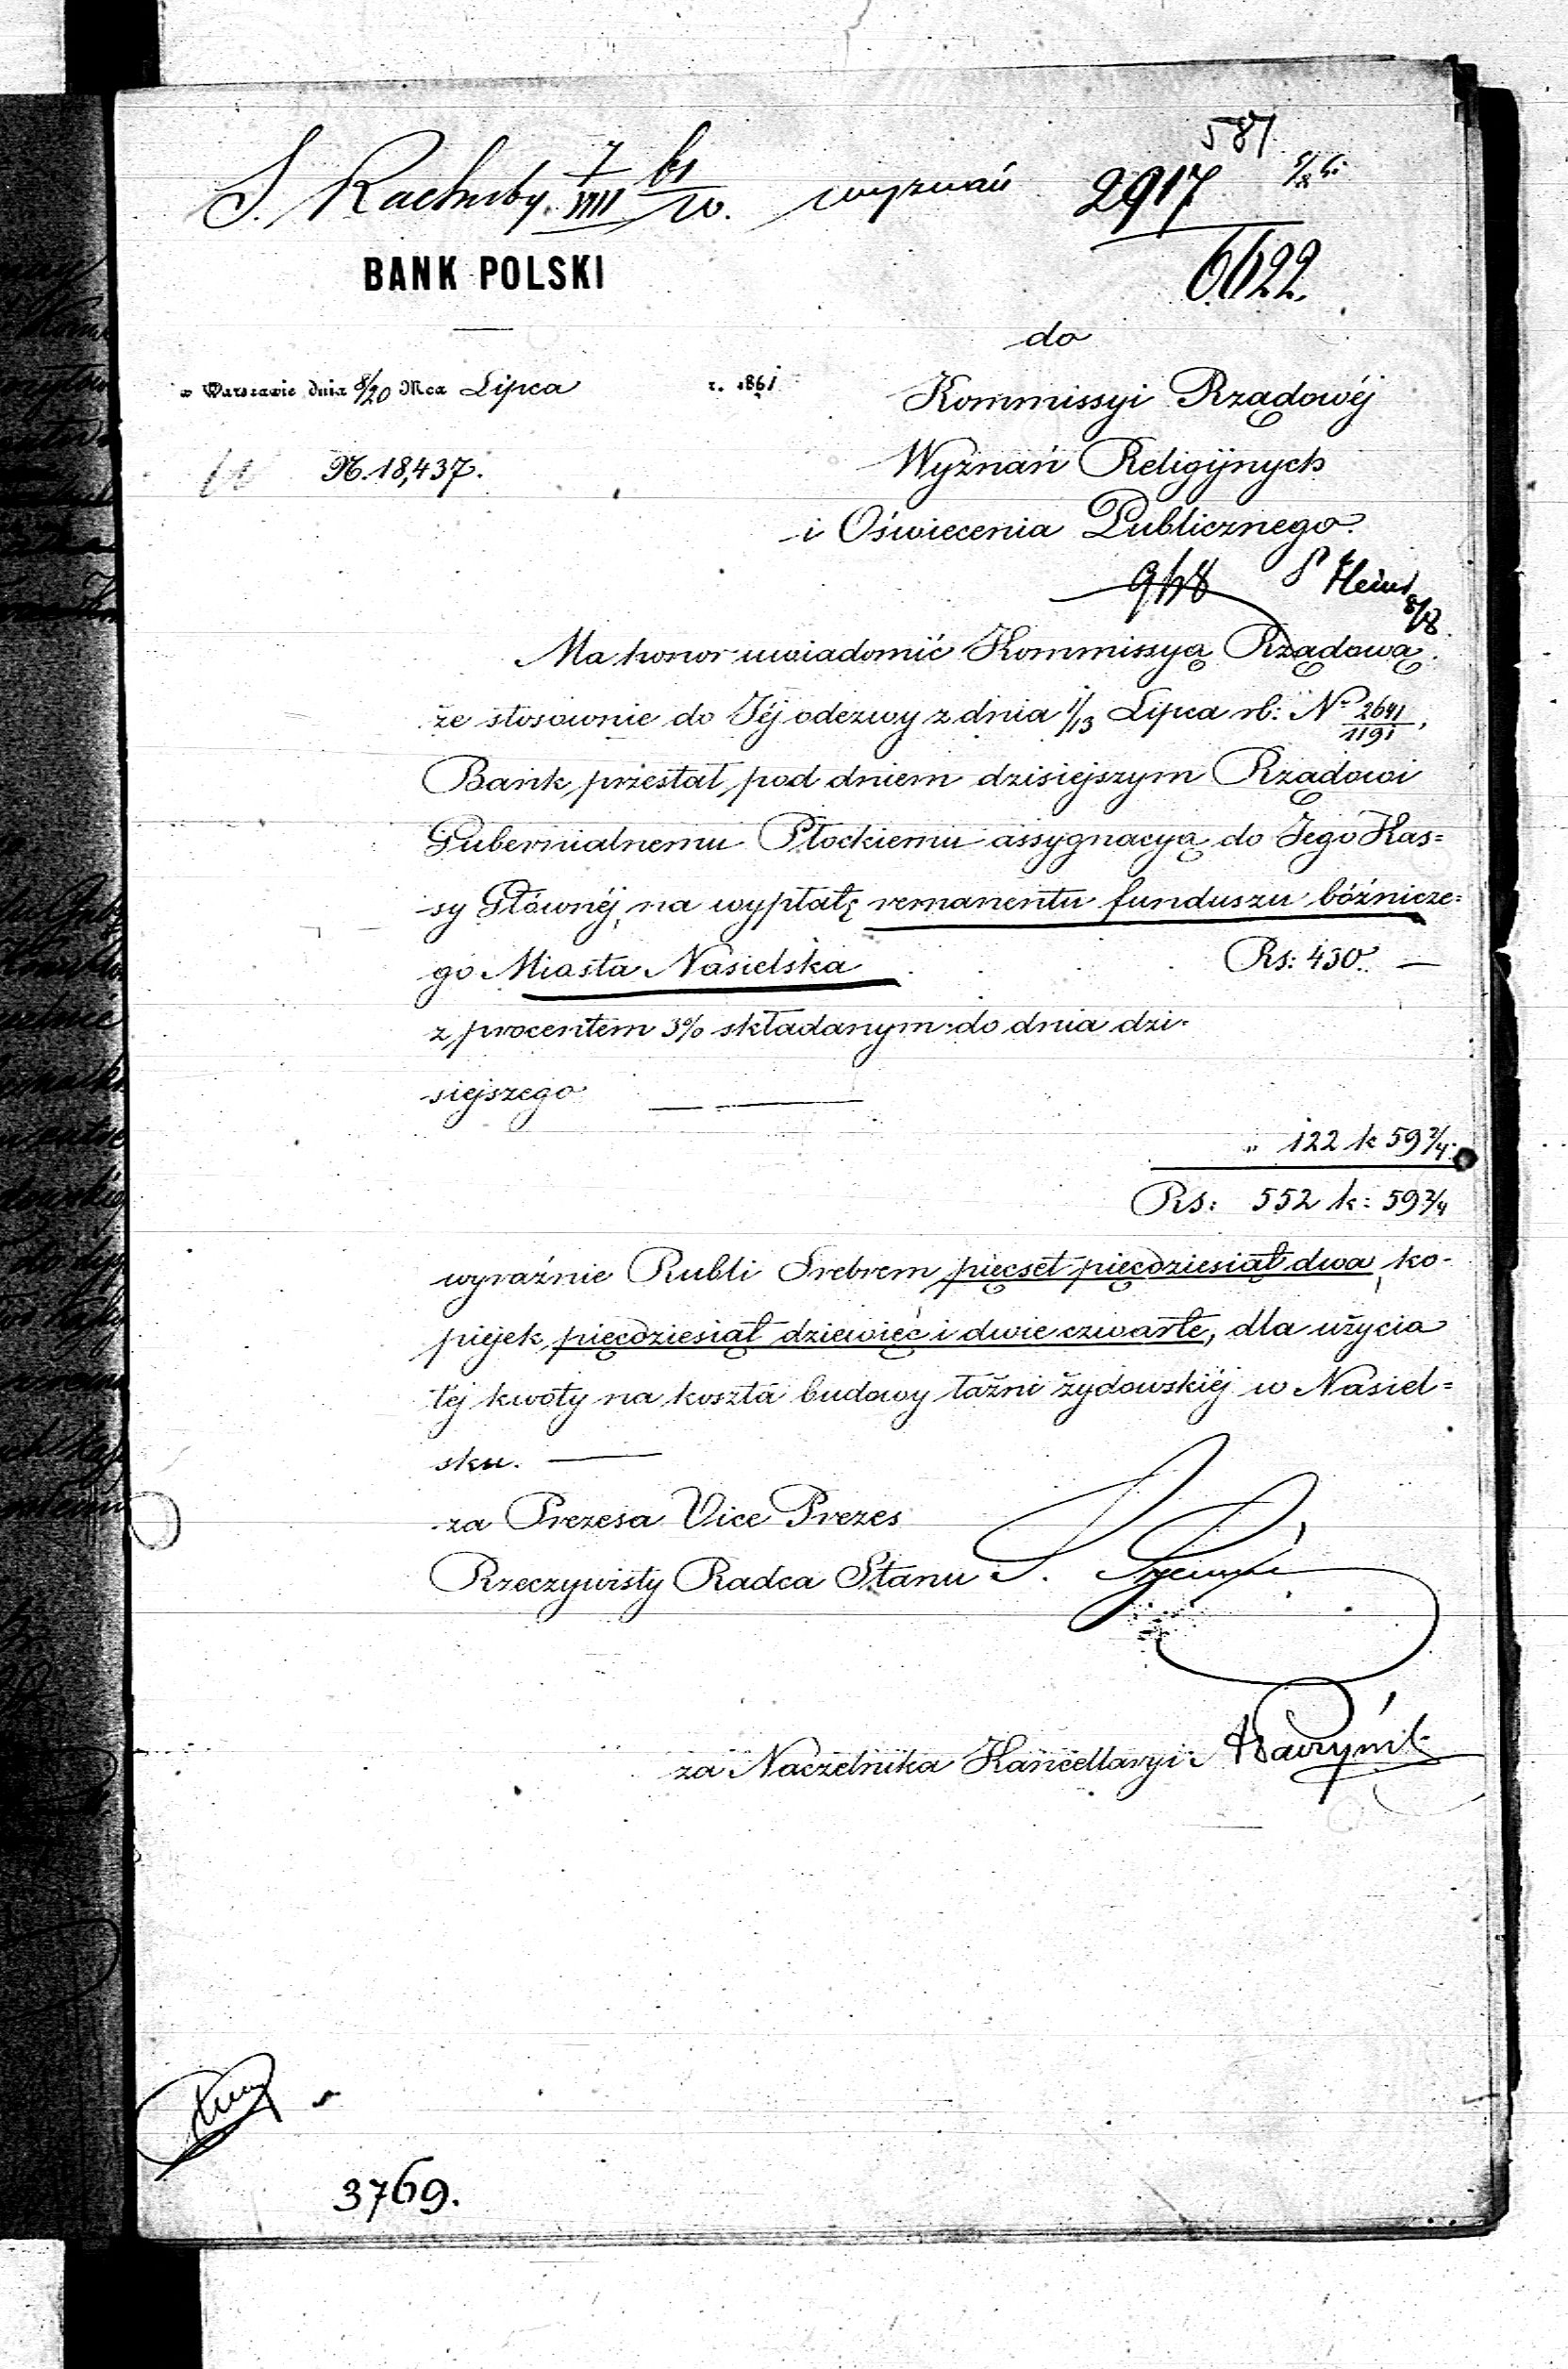 587
S. Rachuby. 7/VIII 61/w. wyznań 2917
6622.
BANK POLSKI
do
w Warszawie dnia 8/20 Mca Lipca r. 1861
Kommissyi Rządowéj
N. 18,437.
Wyznań Religijnych
i Oświecenia Publicznego.
9/8
8/8
Ma honor uwiadomić Kommissyą Rządową
że stosownie do Jéj odezwy z dnia 1/13 Lipca rb: No 2641/1191,
Bank przesłał pod dniem dzisiejszym Rządowi
Gubernialnemu Płockiemu assygnacyą do Jego Kas=
sy Głównéj na wypłatę remanentu funduszu bóźnicze=
go Miasta Nasielska Rs: 430. —
z procentem 3% składanym do dnia dzi-
siejszego
" 122 k 59 2/4
Rs: 552 k: 59 2/4
wyraźnie Rubli Srebrem pięcset pięcdziesiąt dwa, ko-
piejek pięcdziesiąt dziewięć i dwie czwarte, dla użycia
téj kwoty na koszta budowy łaźni żydowskiéj w Nasiel=
sku.
za Prezesa Vice Prezes
Rzeczywisty Radca Stanu
za Naczelnika Kancellaryi
3769.